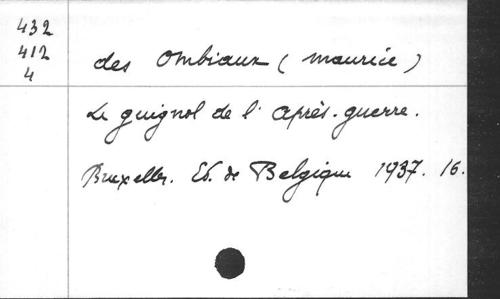 432
412
4
des Ombiaux (Maurice)
Le guignol de l'après-guerre.
Bruxelles. Ed. de Belgique 1937. 16.